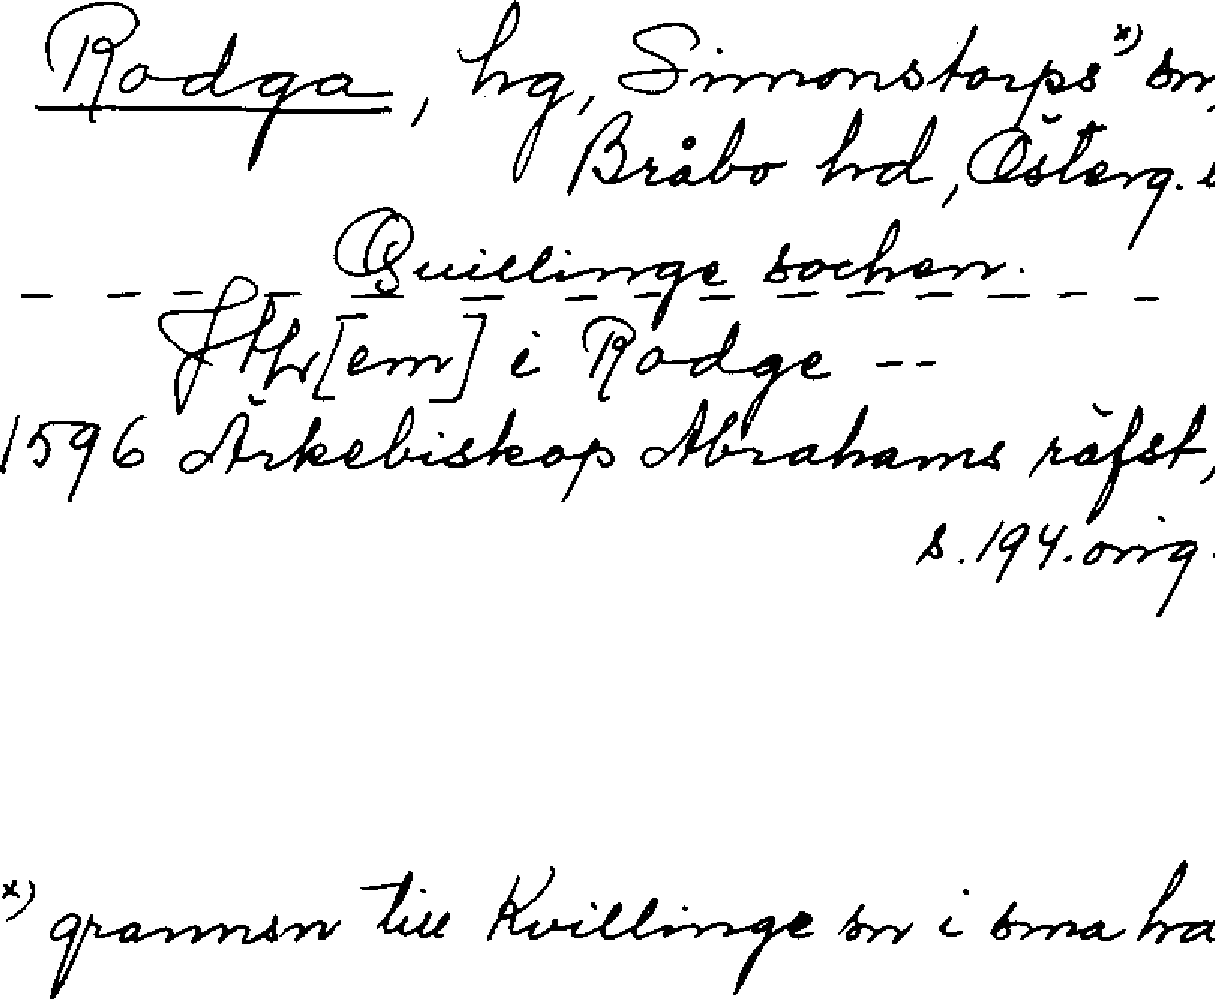 Rodga, hg, Simonstorps x) sn,
Bråbo hd, Österg. l
Quillinge sochen.
– – – – – – – – – – – – – –
[em] i Rodge --
1596 Ärkebiskop Abrahams räfst,
s. 194. orig.
x) grannsn till Kvillinge sn i sma hd